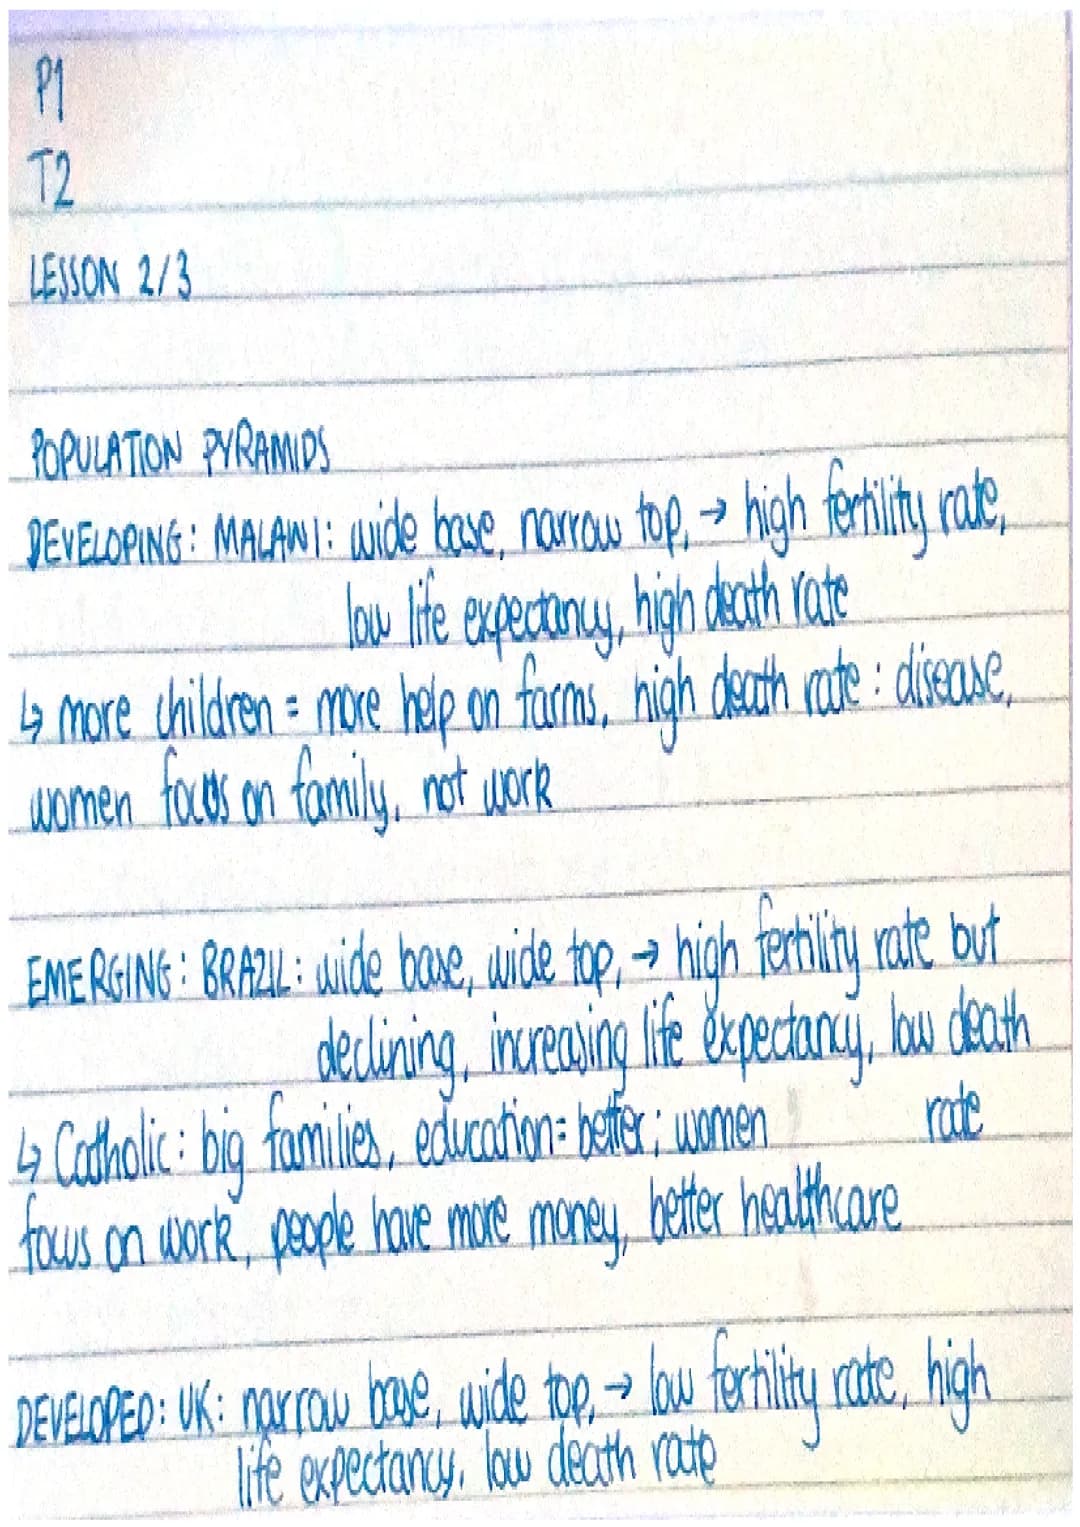 P1
T2
LESSON 2/3
POPULATION PYRAMIDS
DEVELOPING: MALAWI: wide base, narrow top, → high fertility rate,
low life expectancy, high death rate
↳ more children = more help on farms, high death rate: disease,
women focus on family, not work
EMERGING: BRAZIL: wide base, wide top, → high fertility rate but
declining, increasing life expectancy, low death
rate
↳ Catholic: big families, education = better; women
focus on work, people have more money, better healthcare
DEVELOPED: UK: narrow base, wide top, → low fertility rate, high
life expectancy, low death rate